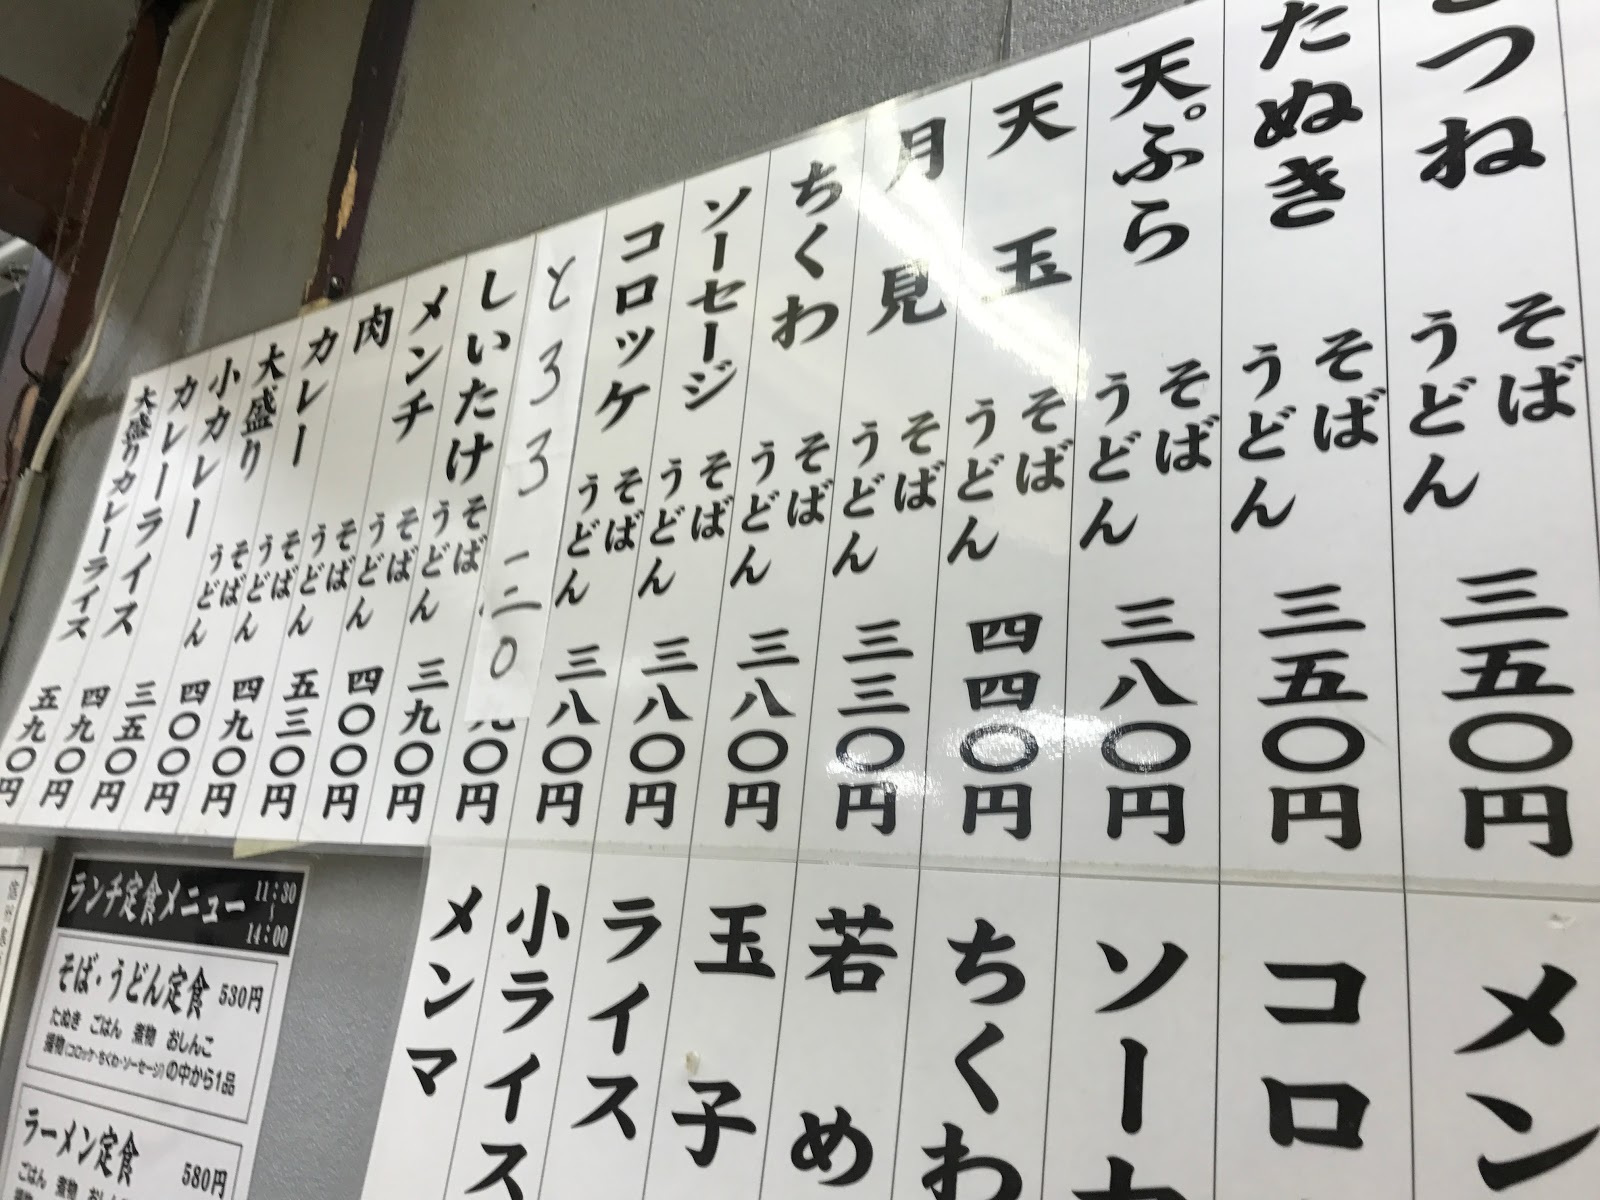 つね そば うどん 三五〇円
たぬき そば うどん 三五〇円
天ぷら そば うどん 三八〇円
天玉 そば うどん 四四〇円
月見 そば うどん 三三〇円
ちくわ そば うどん 三八〇円
ソーセージ そば うどん 三八〇円
コロッケ そば うどん 三八〇円
とろろ
〇円
しいたけ そば うどん 三九〇円
メンチ そば うどん 四〇〇円
肉 そば うどん 五三〇円
カレー そば うどん 四九〇円
大盛り そば うどん 四〇〇円
小カレー 三五〇円
カレーライス 四九〇円
大盛りカレーライス 五九〇円
メン
コロ
ソー
ちくわ
若め
玉子
ライス
小ライス
メンマ
ランチ定食メニュー 11:30〜14:00
そば・うどん定食 530円
たぬき ごはん 煮物 おしんこ
揚物(コロッケ・ちくわ・ソーセージ)の中から1品
ラーメン定食 580円
ごはん 煮物